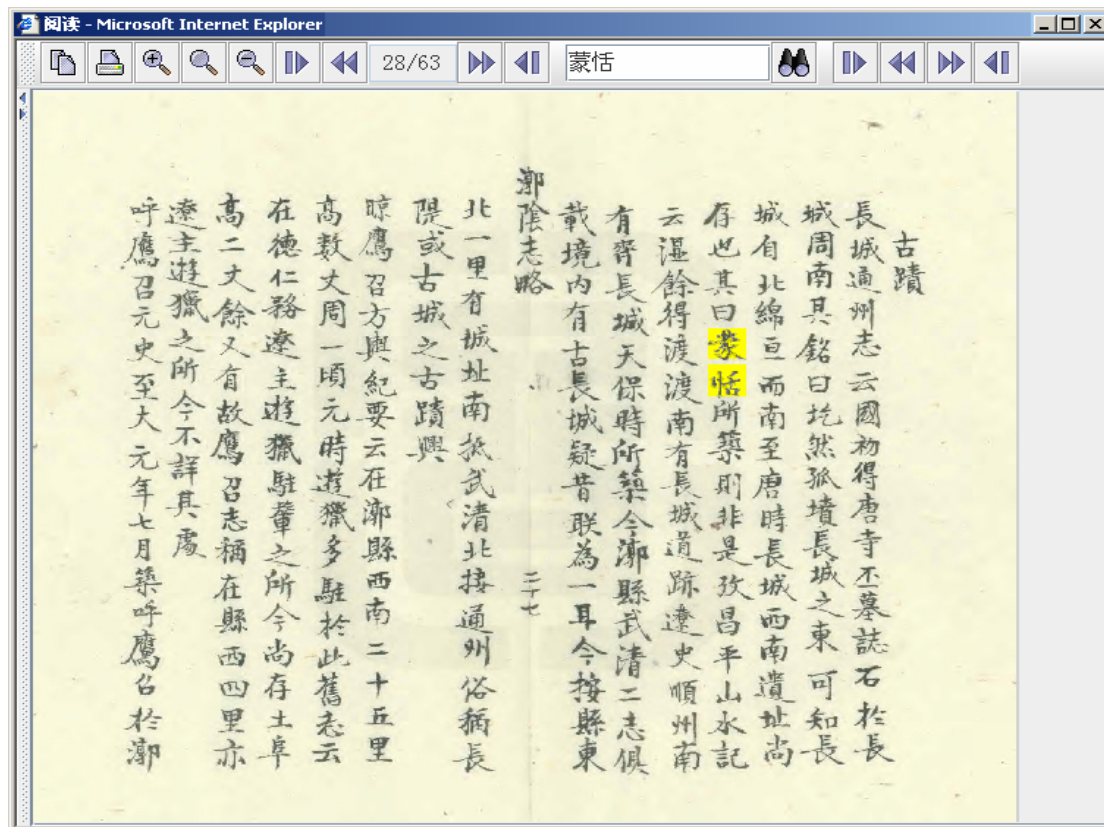 阅读 - Microsoft Internet Explorer
28/63
蒙恬
古蹟
長城通州志云國初得唐寺丞墓誌石於長
城周南其銘曰圪然孤墳長城之東可知長
城自北綿亘而南至唐時長城西南遺址尚
存也其曰蒙恬所築則非是攷昌平山水記
云溫餘得渡渡南有長城道跡遼史順州南
有齊長城天保時所築今漷縣武清二志俱
載境内有古長城疑昔联為一耳今按縣東
漷陰志略
二十七
北一里有城址南抵武清北接通州俗稱長
隄或古城之古蹟歟
晾鷹召方輿紀要云在漷縣西南二十五里
高数丈周一頃元時遊獵多駐於此舊志云
在德仁務遼主遊獵駐輦之所今尚存土阜
高二丈餘又有故鷹召志稱在縣西四里亦
遼主遊獵之所今不詳其處
呼鷹召元史至大元年七月築呼鷹召於漷